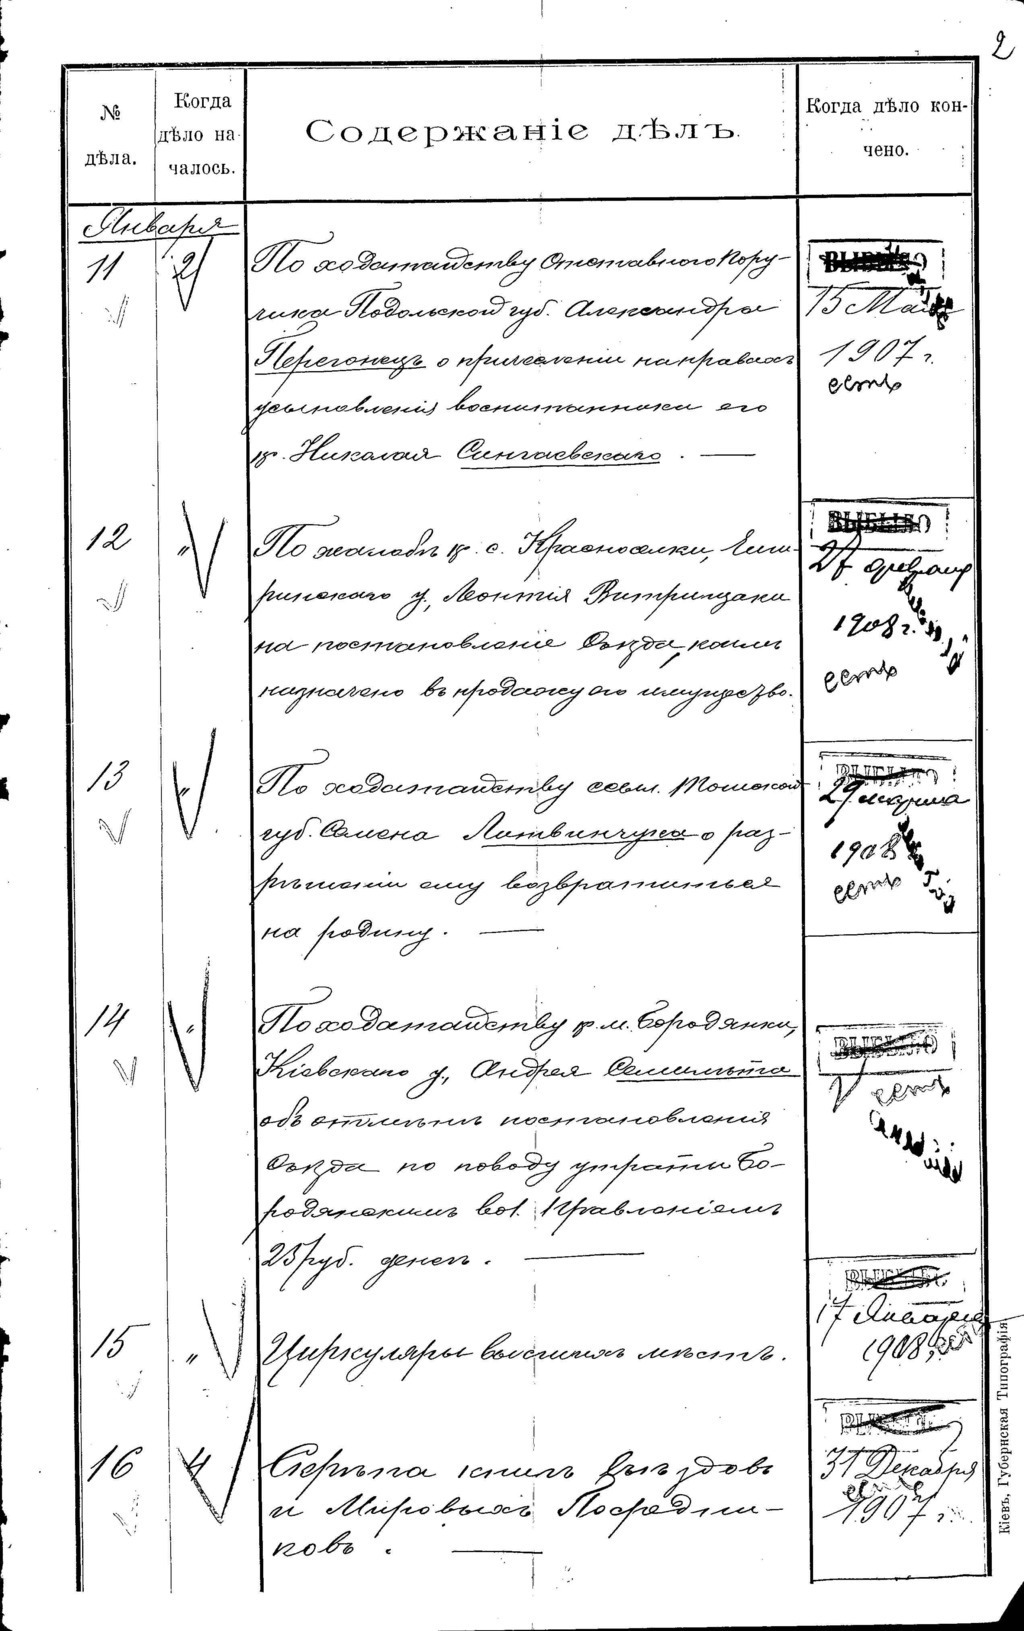 2
№ дѣла.
Когда дѣло началось.
Содержаніе дѣлъ.
Когда дѣло кончено.
Января
11 2 По ходатайству Отставного Пору-
чика Подольской губ. Александра
Перегонецъ о причисленіи на правахъ
усыновленія воспитанника его
кр. Николая Сингаевскаго. —
ВЫБЫЛО
15 Мая
1907 г.
есть
12 " По жалобѣ кр. с. Красноселки,
у., Леонтія Витрищака
на постановленіе Съѣзда, коимъ
назначено въ продажу его имущество.
ВЫБЫЛО
27 февраля
1908 г.
есть
13 " По ходатайству ссыл. Томской
губ. Семена Литвинчука о раз-
рѣшеніи ему возвратиться
на родину. —
ВЫБЫЛО
29 марта
1908
есть
14 " По ходатайству кр. м. Бородянки,
Кіевскаго у., Андрея
объ отмѣнѣ постановленія
Съѣзда по поводу утраты Бо-
родянскимъ вол. Правленіемъ
25 руб. денегъ. —
ВЫБЫЛО
есть
15 " Циркуляры высшихъ мѣстъ.
ВЫБЫЛО
17 Января
1908
16 4 книгъ Съѣздовъ
и Мировыхъ Посредни-
ковъ. —
31 Декабря
есть
1907 г.
Кіевъ, Губернская Типографія